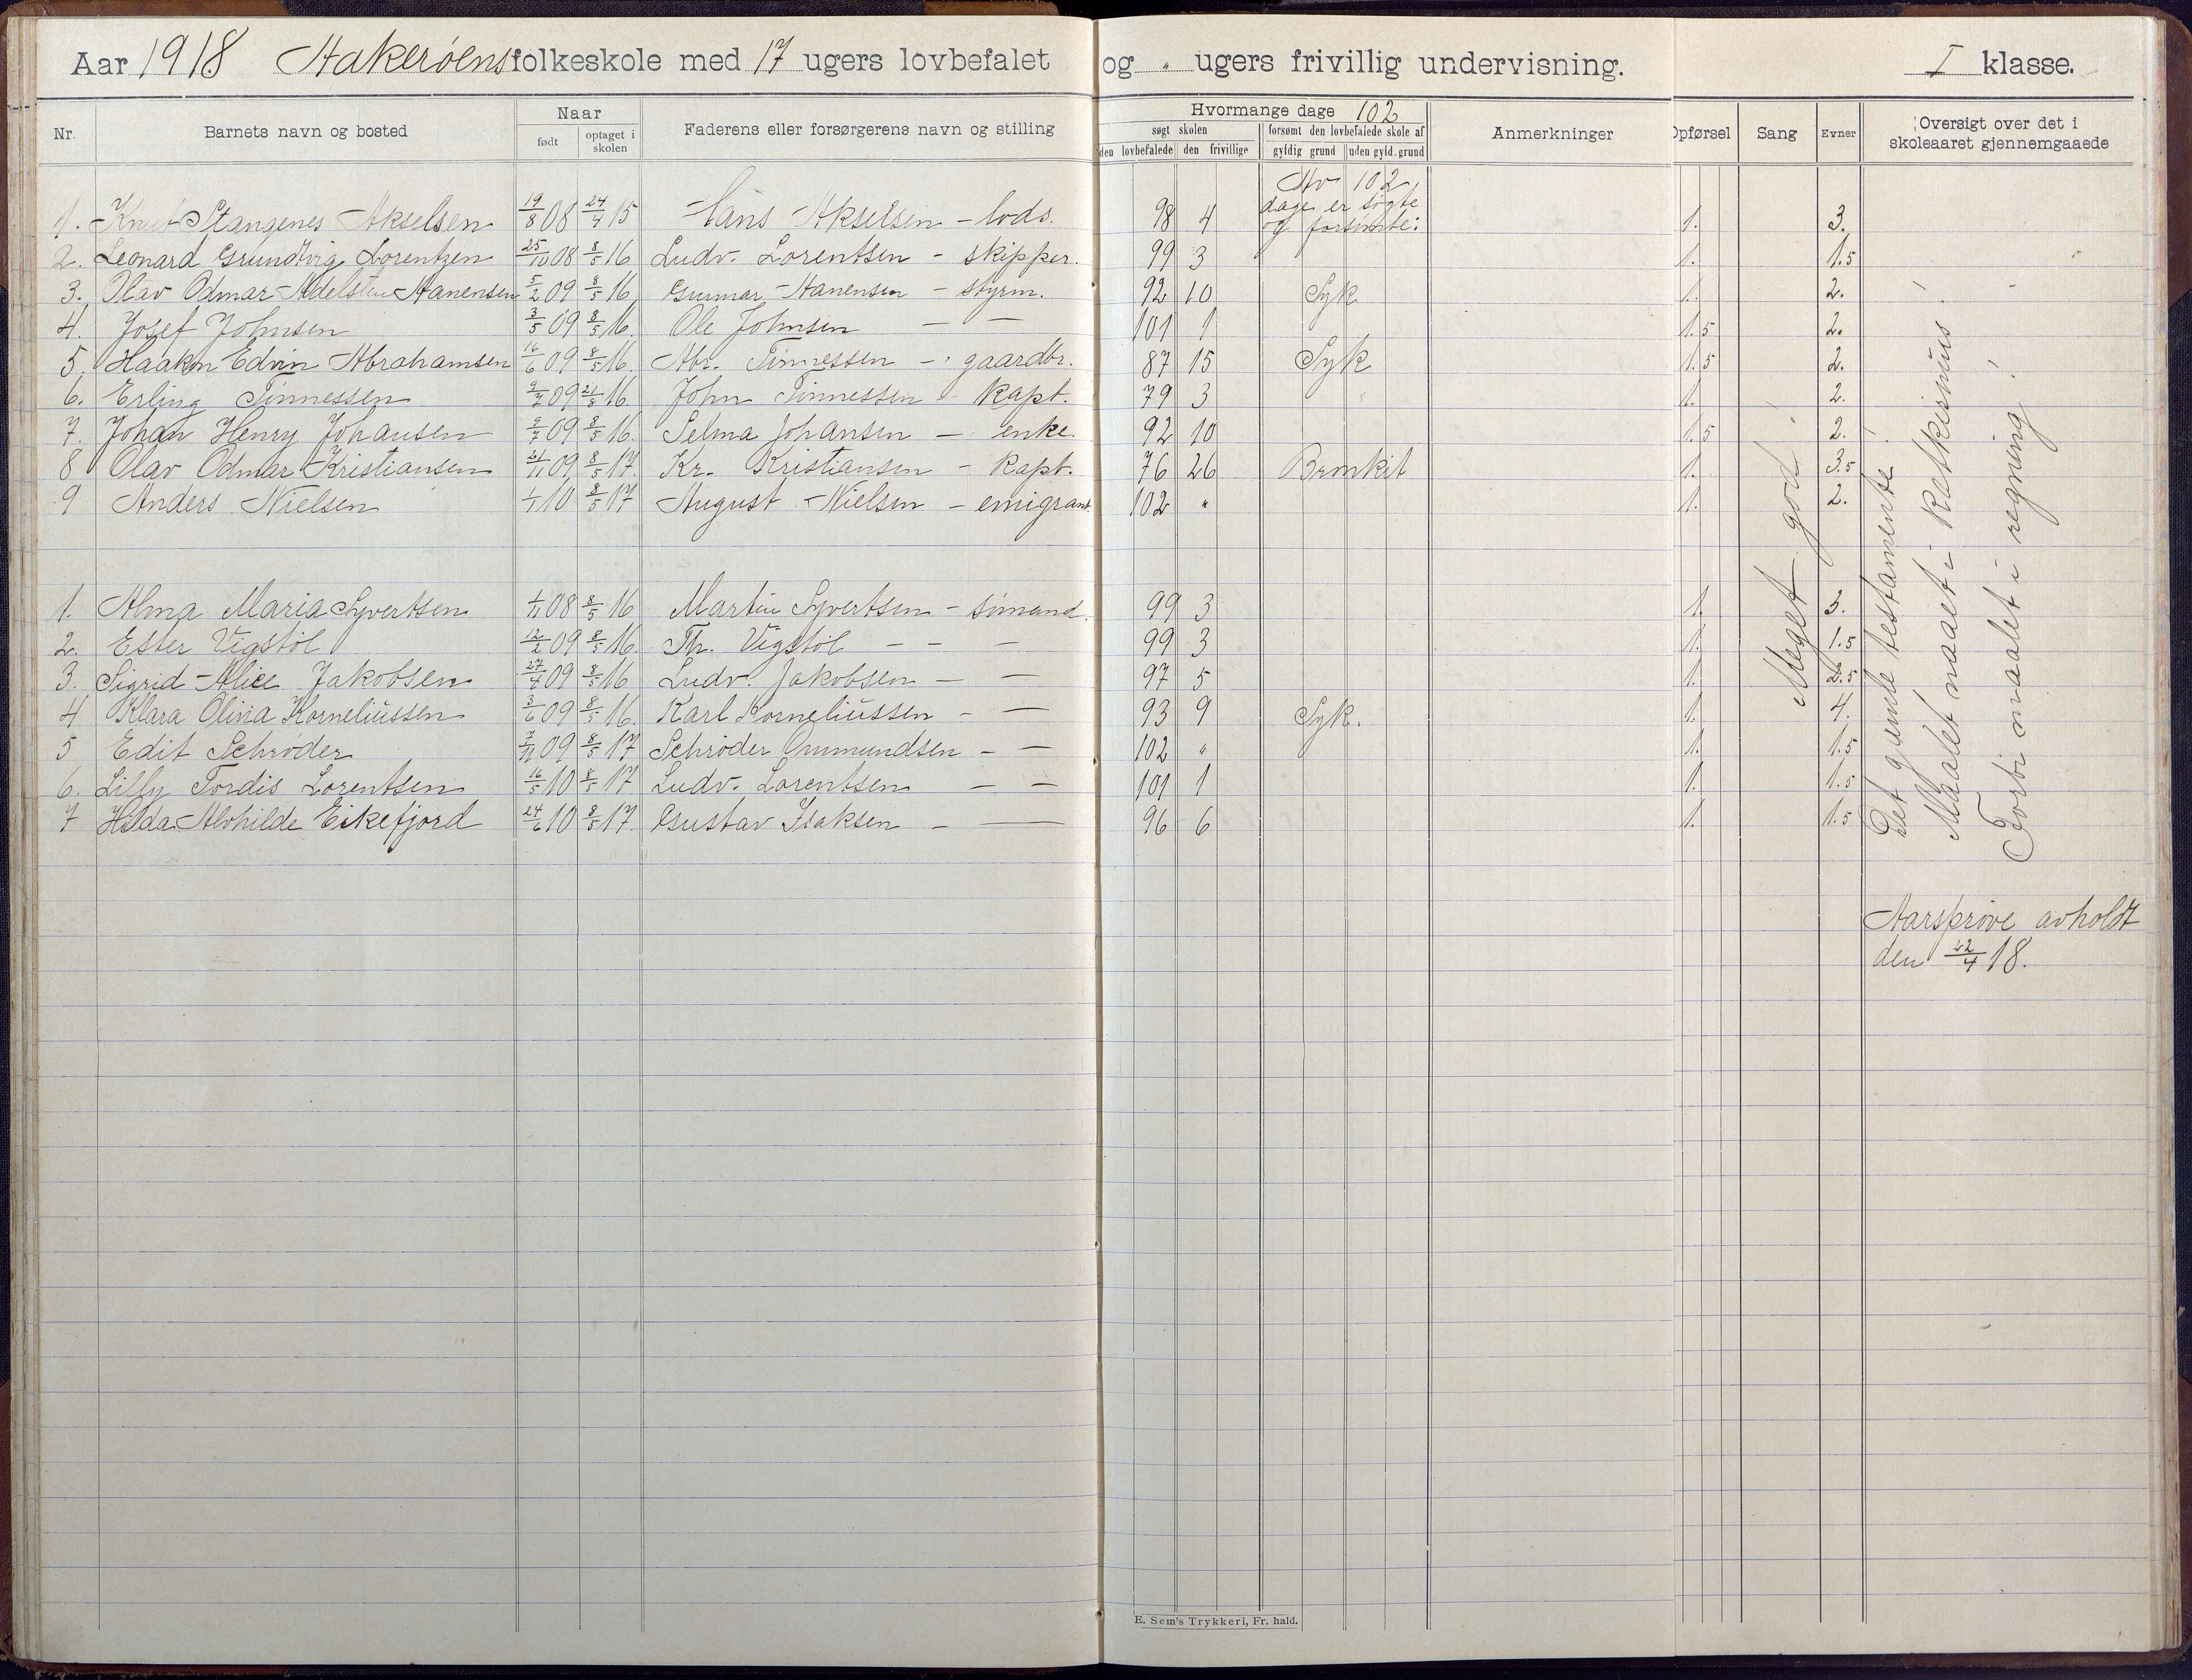 Aar 1918 Hakerøens folkeskole med 17 ugers lovbefalet og " ugers frivillig undervisning. I klasse.
Nr. Barnets navn og bosted Naar født optaget i skolen Faderens eller forsørgerens navn og stilling Hvormange dage 102 søgt skolen den lovbefalede den frivillige forsømt den lovbefalede skole af gyldig grund uden gyld. grund Anmerkninger Opførsel Sang Evner Oversigt over det i skoleaaret gjennemgaaede
Av 102 dage er søgte og forsømte:
1. Knut Stangenes Akselsen 19/8 08 24/4 15 Hans Akselsen - lods. 98 4 1. 3.
2. Leonard Grundtvig Lorentzen 25/10 08 8/5 16 Ludv. Lorentsen - skipper. 99 3 1. 1.5
3. Olav Odmar Adelsten Hanensen 5/2 09 8/5 16 Gunnar Hanensen - styrm. 92 10 Syk 1. 2.
4. Josef Johnsen 3/5 09 8/5 16. Ole Johnsen — — 101 1 1.5 2.
5. Haakon Edvin Abrahamsen 16/6 09 8/5 16. Abr. Tønnessen - gaardbr. 87 15 Syk 1.5 2.
6. Erling Tønnessen 9/7 09 21/8 16. John Tønnessen - Kapt. 79 3 " 1. 2.
7. Johan Henry Johansen 9/7 09 8/5 16. Selma Johansen — enke. 92 10 1.5 2.
8 Olav Odmar Kristiansen 21/11 09 8/5 17. Kr. Kristiansen - Kapt. 76 26 Bronkit 1. 3.5
9 Anders Nielsen 1/1 10 8/5 17 August Nielsen - emigrant. 102 " 1. 2.
1. Alma Maria Syvertsen 1/11 08 8/5 16 Martin Syvertsen - sømand. 99 3 1. 3.
2. Ester Vigstøl 12/2 09 8/5 16. Th. Vigstøl - - — 99 3 1. 1.5
3. Sigrid Alice Jakobsen 27/4 09 8/5 16 Ludv. Jakobsen — — 97 5 1. 2.5
4 Klara Olivia Korneliussen 3/6 09 8/5 16. Karl Korneliussen - — 93 9 Syk. 1. 4.
5 Edit Schrøder 7/11 09 8/5 17 Schrøder Ommundsen - — 102 " 1. 1.5
6. Lilly Tordis Lorentsen 16/5 10 8/5 17 Ludv. Lorentsen — — 101 1 1. 1.5
7 Hilda Alvhilde Eikefjord 24/6 10 8/5 17. Gustav Isaksen - — 96 6 1. 1.5
Meget god!
Det gamle testamente!
Maalet naaet i Katekismus!
Forbi maalet i regning!
Aarsprøve avholdt
den 22/4 18.
E. Sem's Trykkeri, Fr. hald.